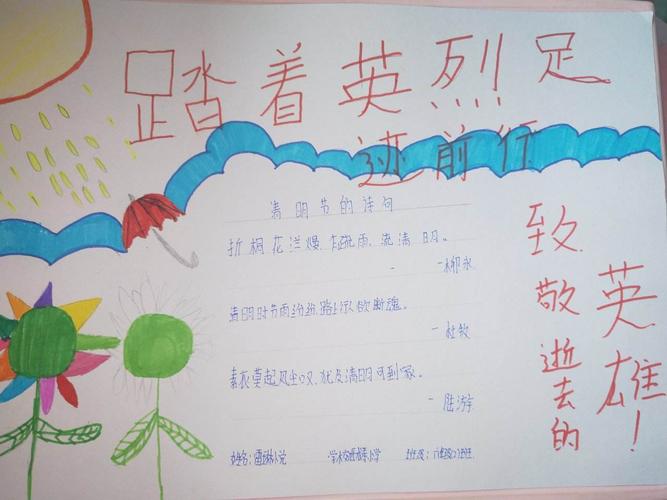 踏着英烈足
迹前行
清明节的诗句
折桐花烂熳,乍疏雨,洗清明。
-柳永
清明时节雨纷纷,路上行人欲断魂。
-杜牧
素衣莫起风尘叹,犹及清明可到家。
-陆游
姓名: 学校: 小学 班级:六年级(2)班
致敬逝去的
英雄!